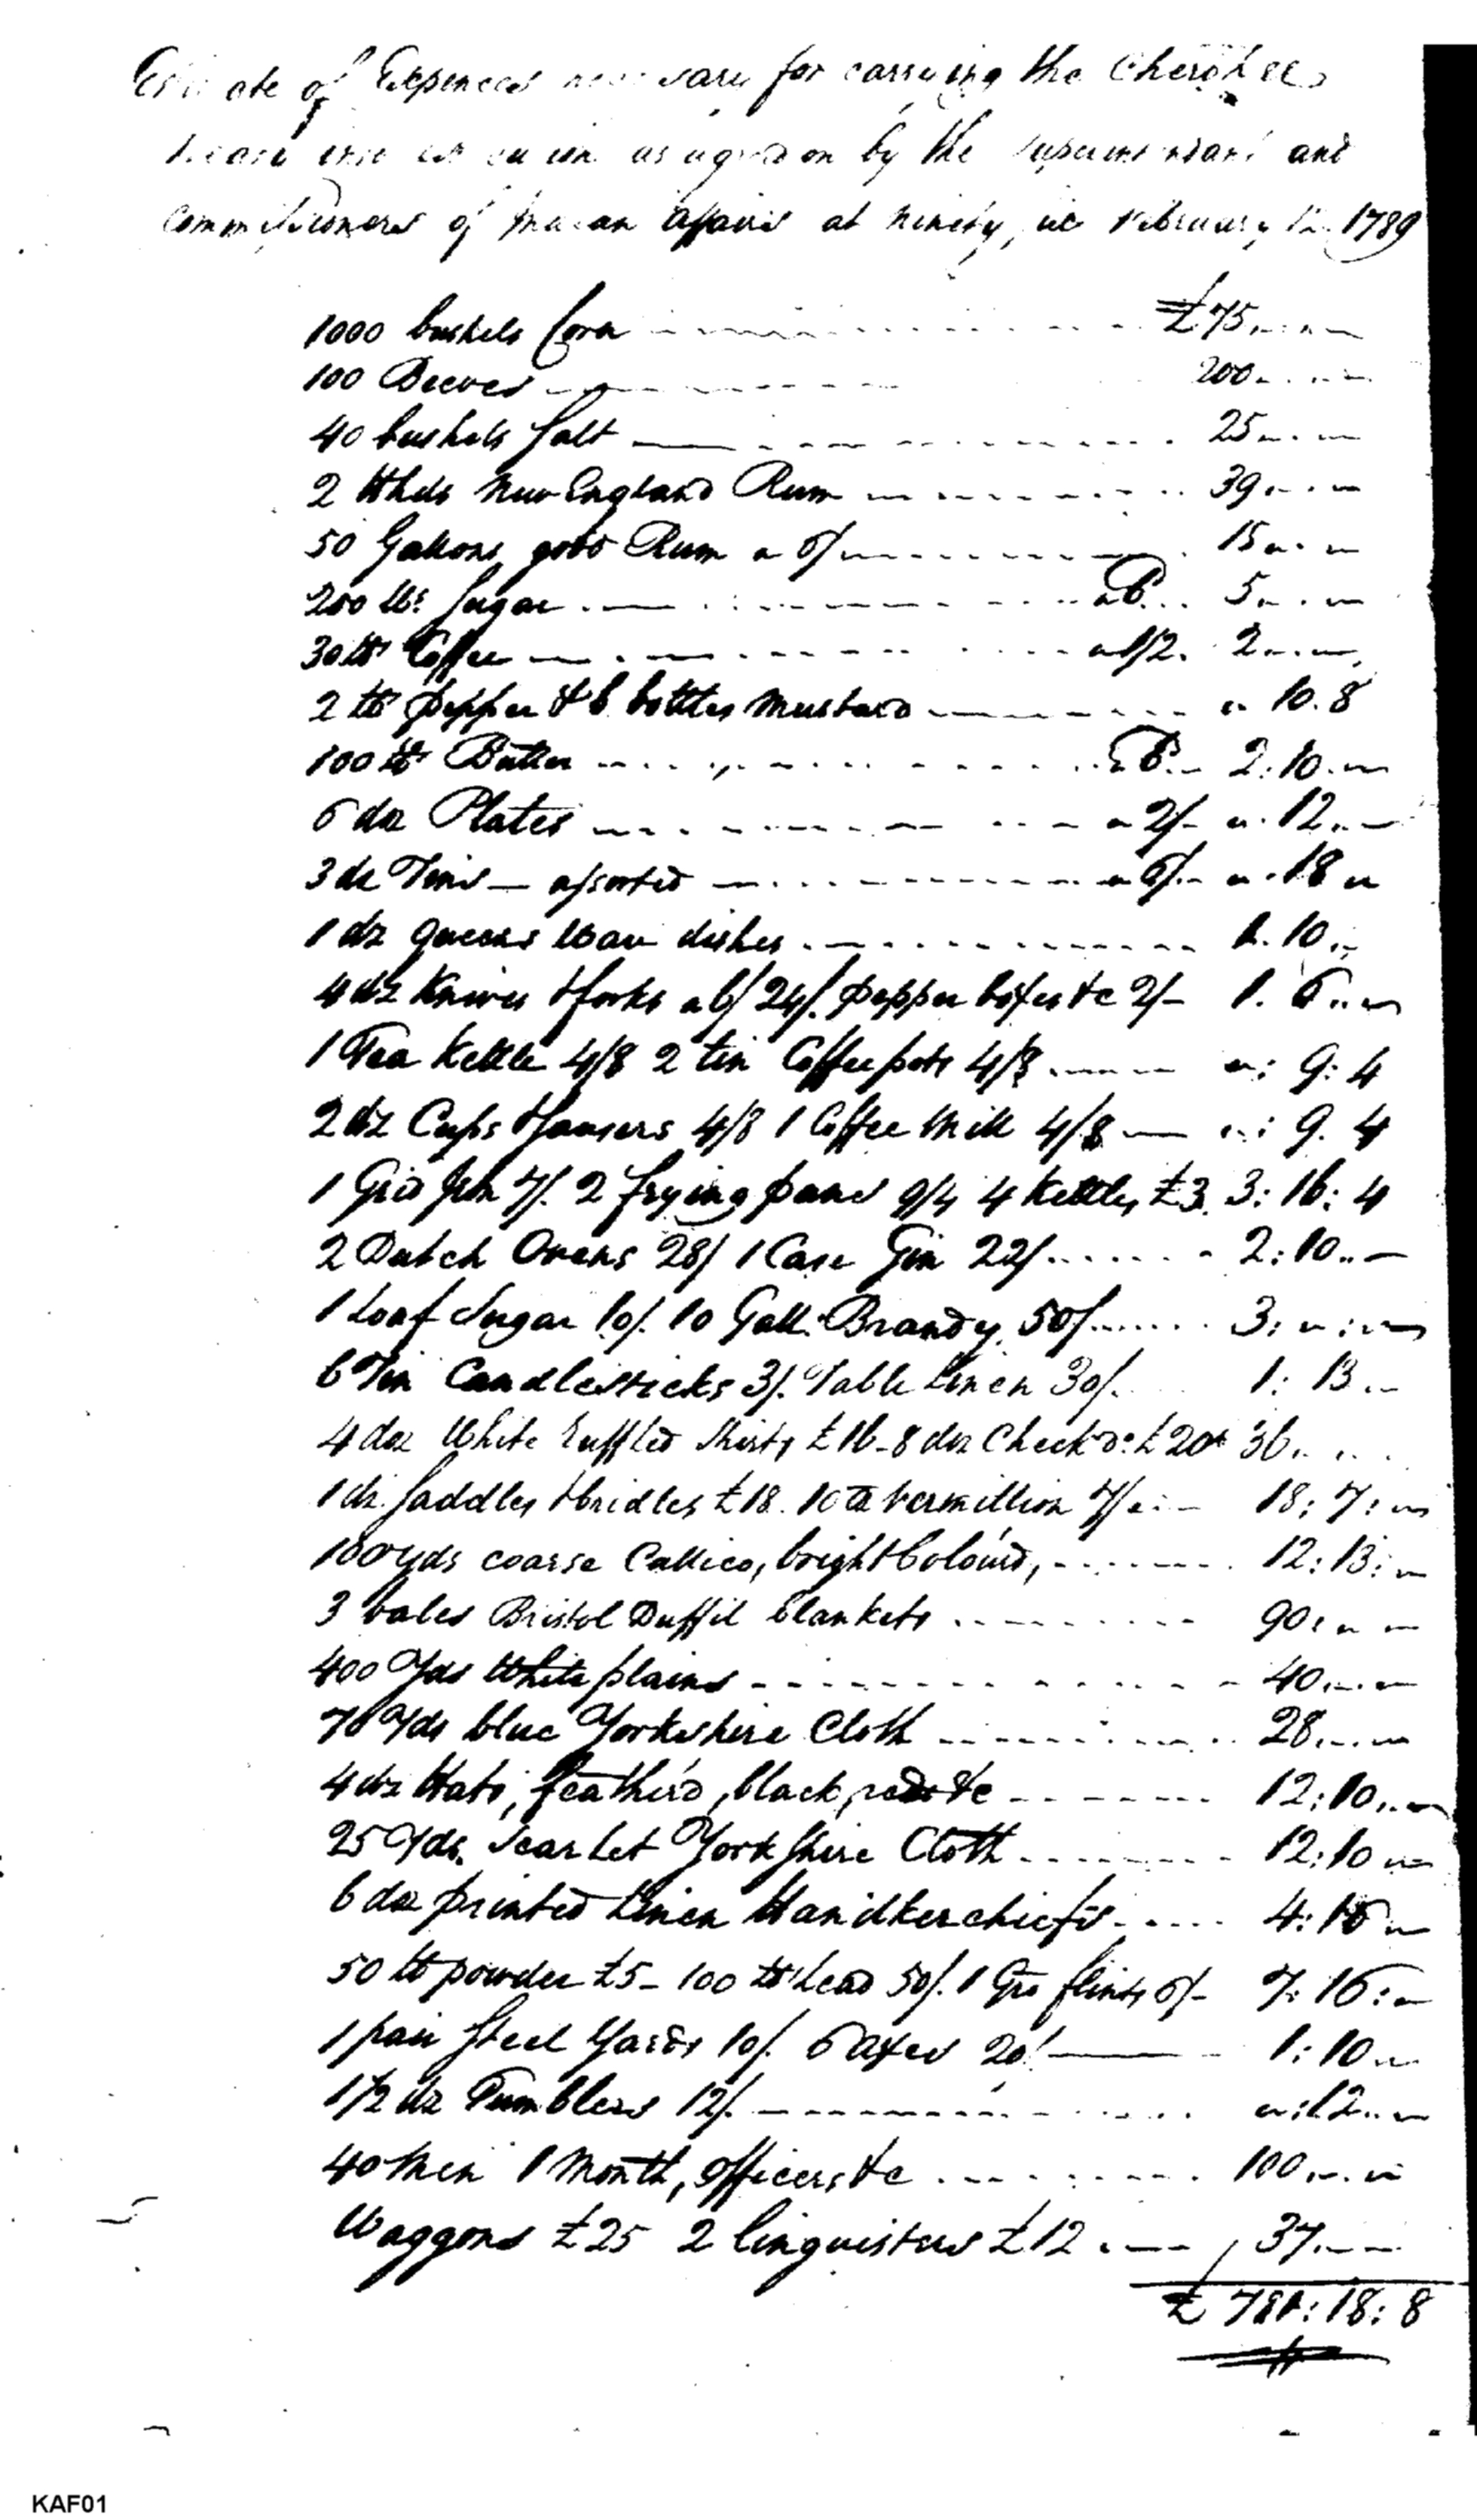 Estimate of Expences necessary for carrying the Cherokee
as agreed on by the Superintendant and
Commissioners of Indian affairs at Ninety Six February 12 1789
1000 bushels Corn £75
100 Beeves 200
40 bushels Salt 25
2 Hhds New England Rum 39
50 Gallons good Rum a 6/ 15
200 lbs Sugar a 6 5
30 lb Coffee 2
2 lb pepper & 6 bottles Mustard 10.8
100 lb Butter a 6 2:10
6 doz Plates a 2/ 12
3 dz Tins assorted a 6/ 18
1 dz queens Ware dishes 1.10
4 dz Knives & forks a 6/ 24/. pepper boxes &c 2/ 1.6
1 Tea Kettle 4/8 2 tin Coffee pots 4/8 9:4
2 dz Cups & saucers 4/8 1 Coffee Mill 4/8 9.4
1 Grid Iron 7/. 2 frying pans 9/4 4 Kettles £3 3:16:4
2 Dutch Ovens 28/ 1 Case Gin 22/ 2:10
1 Loaf Sugar 10/. 10 Gall. Brandy 50/ 3
6 Tin Candlesticks 3/. Table Linen 30/. 1:13
4 doz White ruffled Shirts £16 8 doz Check do £20 36
1 dz Saddles & bridles £18. 10 lb Vermillion 7/ 18:7
100 yds coarse Callico, bright Colour'd, 12:13
3 bales Bristol Duffil blankets 90
400 Yds White plains 40
70 Yds blue Yorkshire Cloth 28
4 dz Hats, feather'd, black, red &c 12:10
25 Yds Scarlet Yorkshire Cloth 12:10
6 doz printed Linen Handkerchiefs 4:16
50 lb powder £5 100 lb Lead 50/. 1 Gro flints 6/ 7:16
1 pair Steel Yards 10/. 6 axes 20/ 1:10
1 1/2 dz Tumblers 12/. 12
40 Men 1 Month, officers &c 100
Waggons £25 2 linguisters £12 37
£ 781:18:8
KAF01